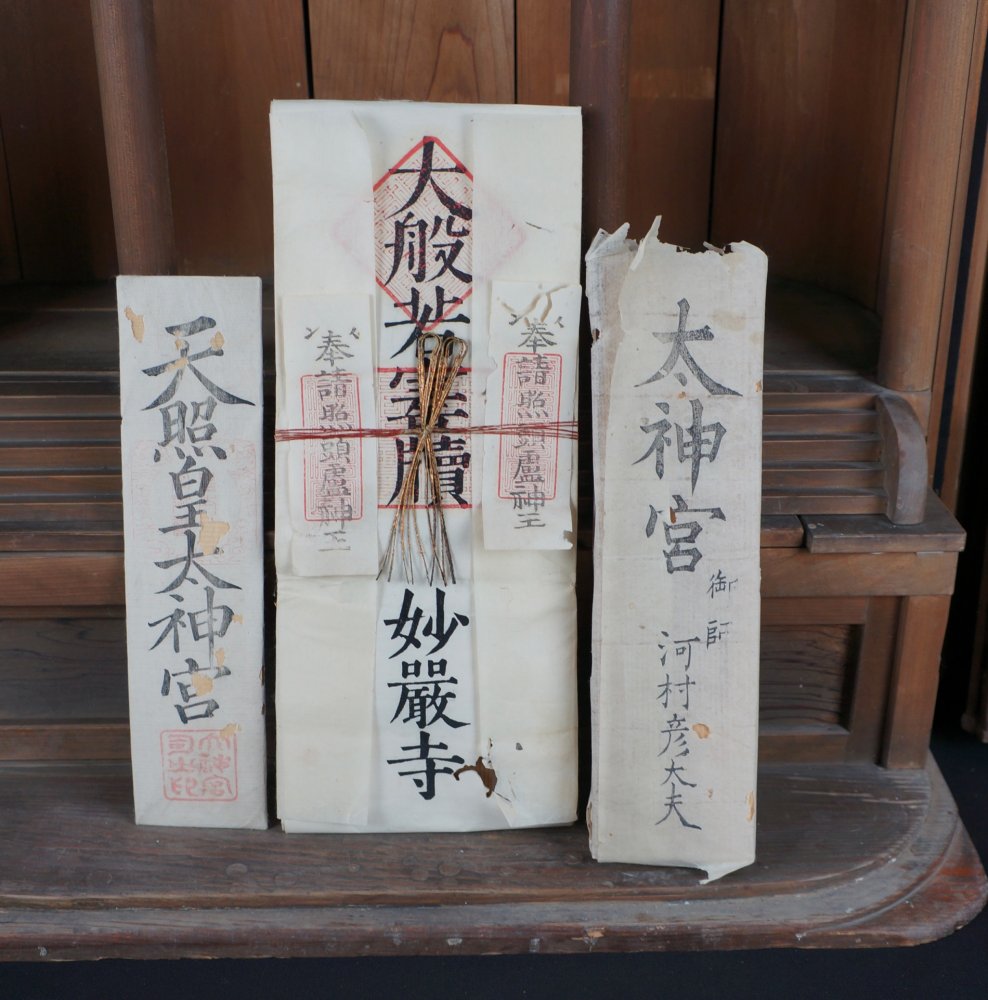 太神宮
御師
河村彦太夫
奉請頭盧神王
大般若牘
妙嚴寺
奉請頭盧神王
天照皇太神宮
大神宮
司之印